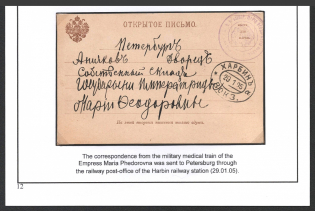 ОТКРЫТОЕ ПИСЬМО.
Петербургъ
Аничковъ Дворецъ
Собственный Складъ
Государыни Императрицы
Маріи Феодоровны
ХАРБИНЪ
The correspondence from the military medical train of the
Empress Maria Phedorovna was sent to Petersburg through
the railway post-office of the Harbin railway station (29.01.05).
12